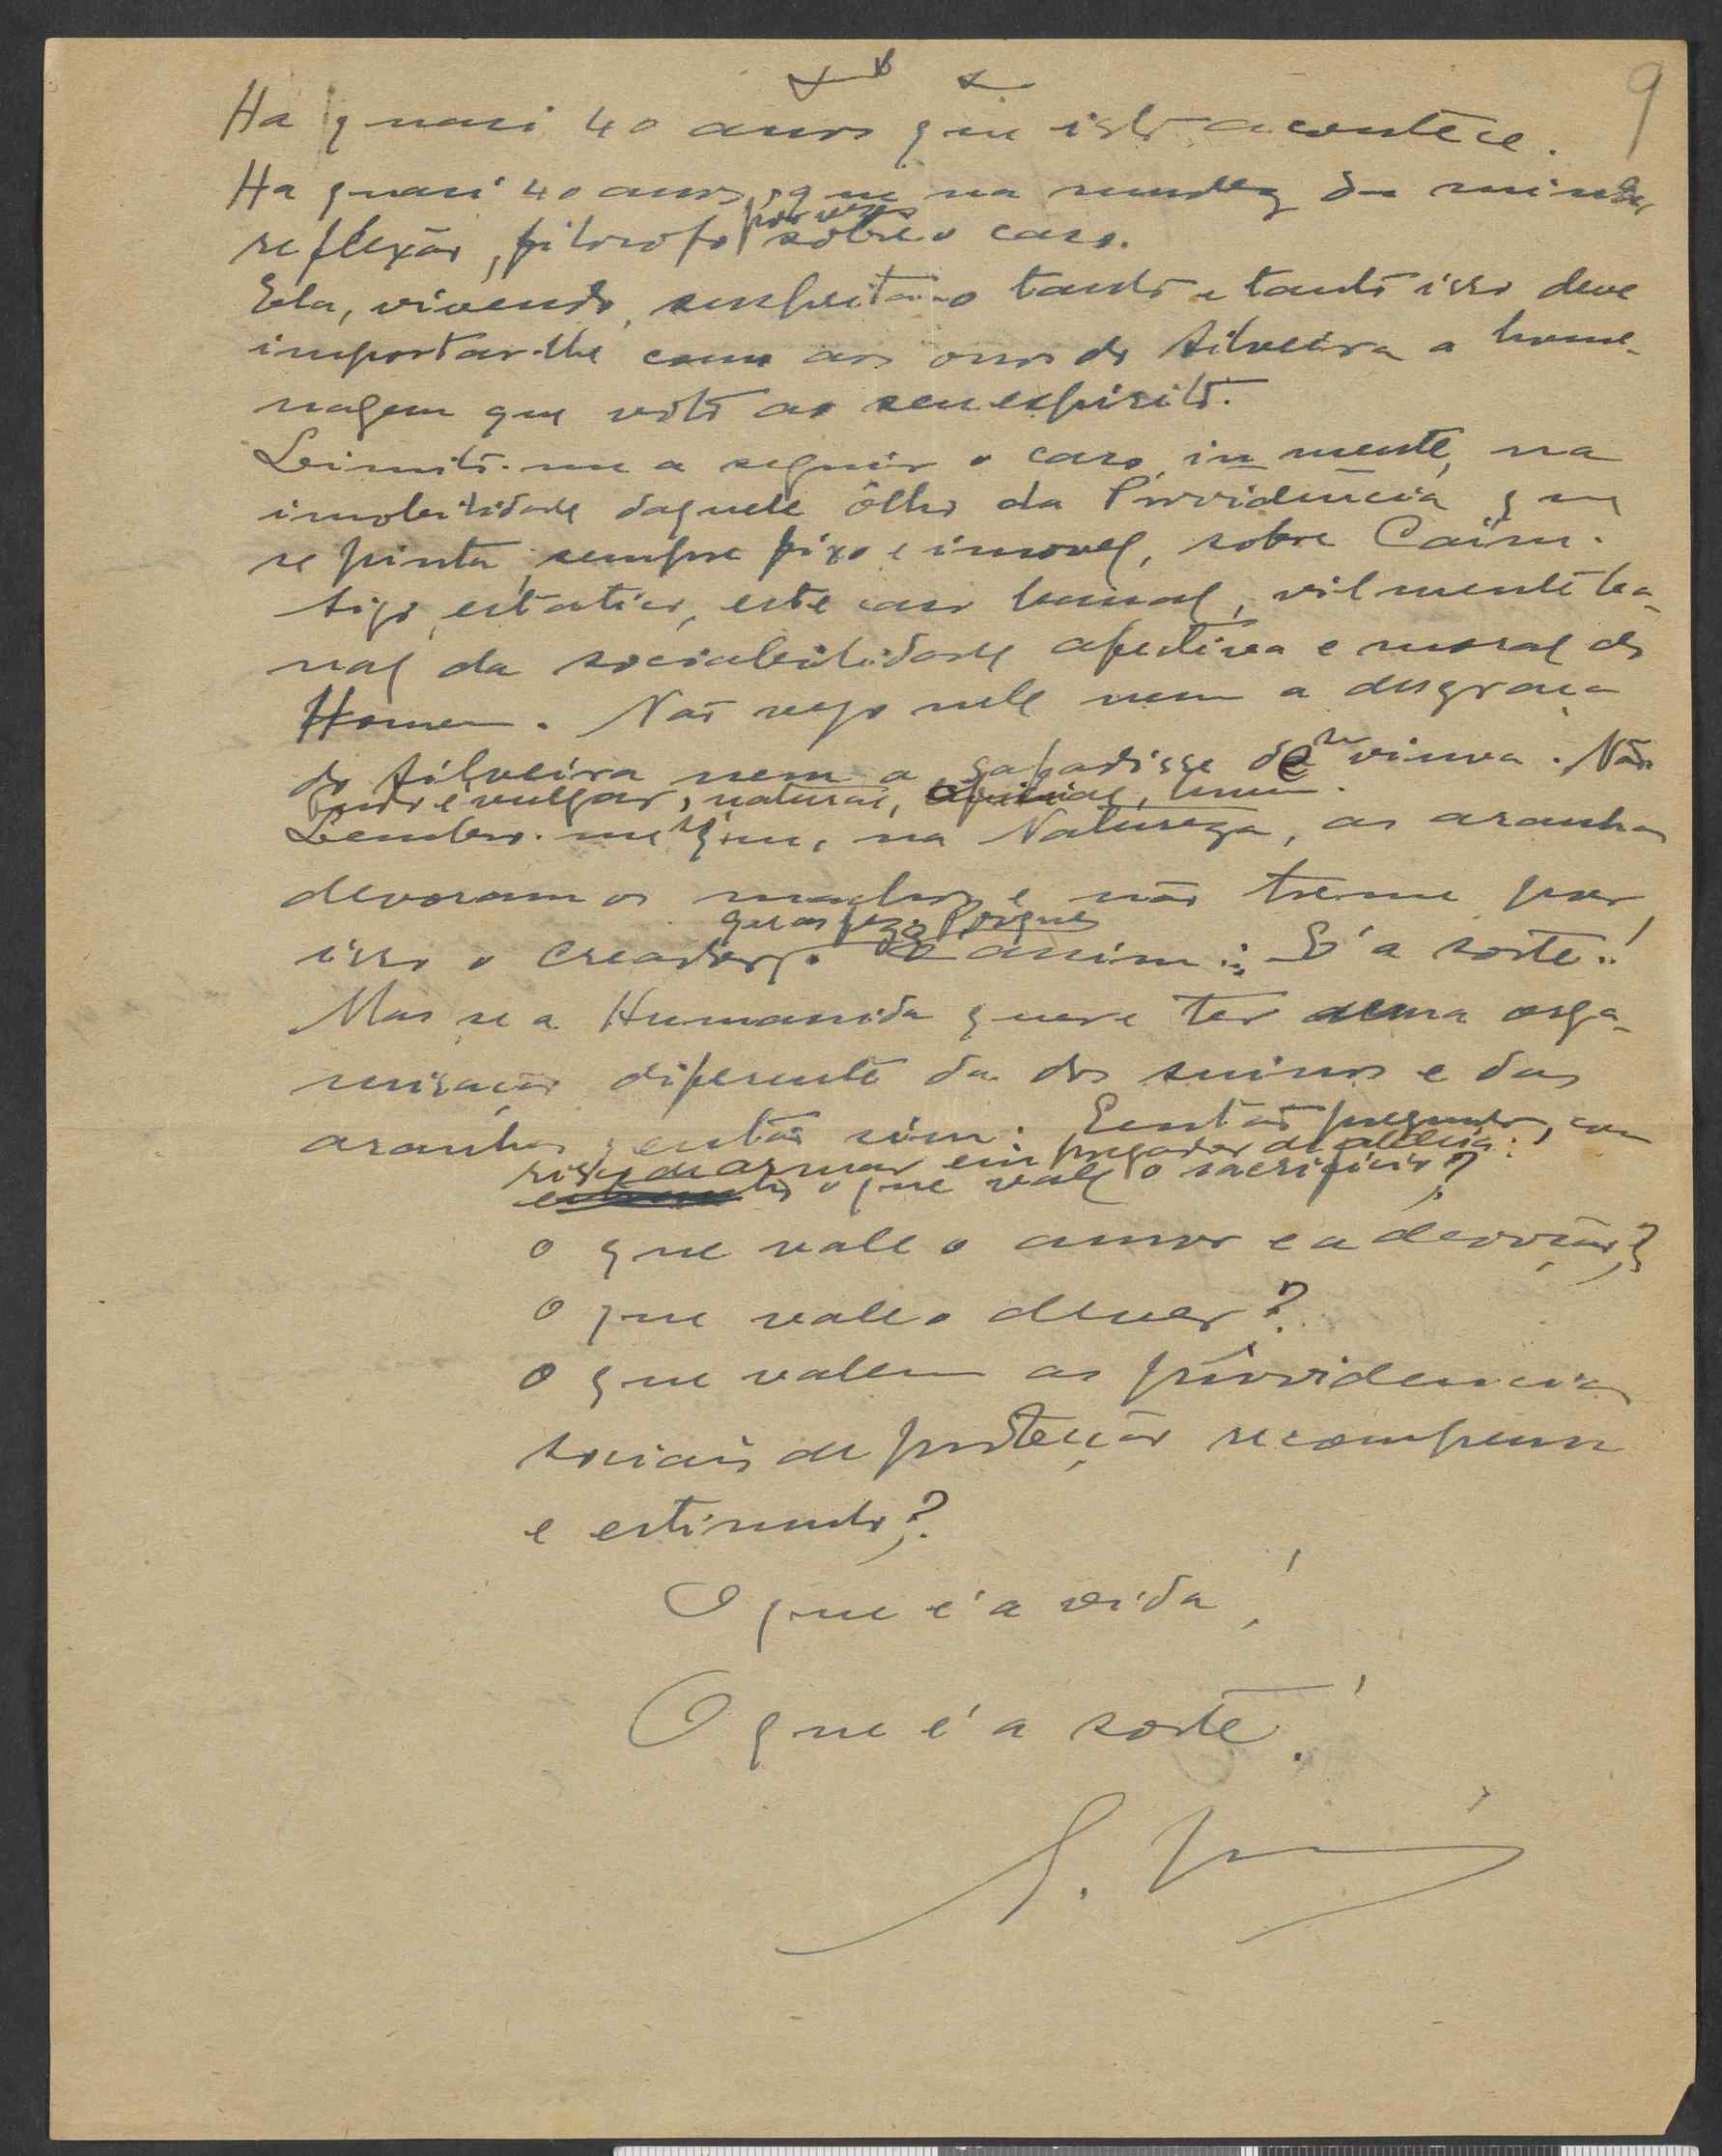 9
Ha quasi 40 anos que isto acontece.
Ha quasi 40 anos, que na mudez da minha
reflexão, filosofo por vezes sobre o caso.
Ela, vivendo, tanto e tanto isso deve
importar-lhe como aos ossos do Silveira a home-
nagem que voto ao seu espirito.
Limito-me a seguir o caso, in mente, na
imobilidade daquele ôlho da Providência que
se pinta, sempre fixo e imovel, sobre Caím.
Sigo, estatico, este caso banal, vilmente ba-
nal da sociabilidade afectiva e moral do
Homem. Não vejo nele nem a desgraça
do Silveira nem a safadisse da viuva. Não.
Tudo é vulgar, natural,
Lembro-me que, na Natureza, as aranhas
devoram os machos e não treme por
isso o creador que as fez. Porque? É assim: É a sorte!
Mas se a Humanida quere ter uma orga-
nisação diferente da dos suinos e das
aranhas, então sim: Então pregunto, com
risco de armar em pregador de aldeia:
o que vale o sacrificio?
o que vale o amor e a devoção?
o que vale o dever?
o que valem as providencias
sociais de proteção recompensa
e estimulo?
O que é a vida!
O que é a sorte!